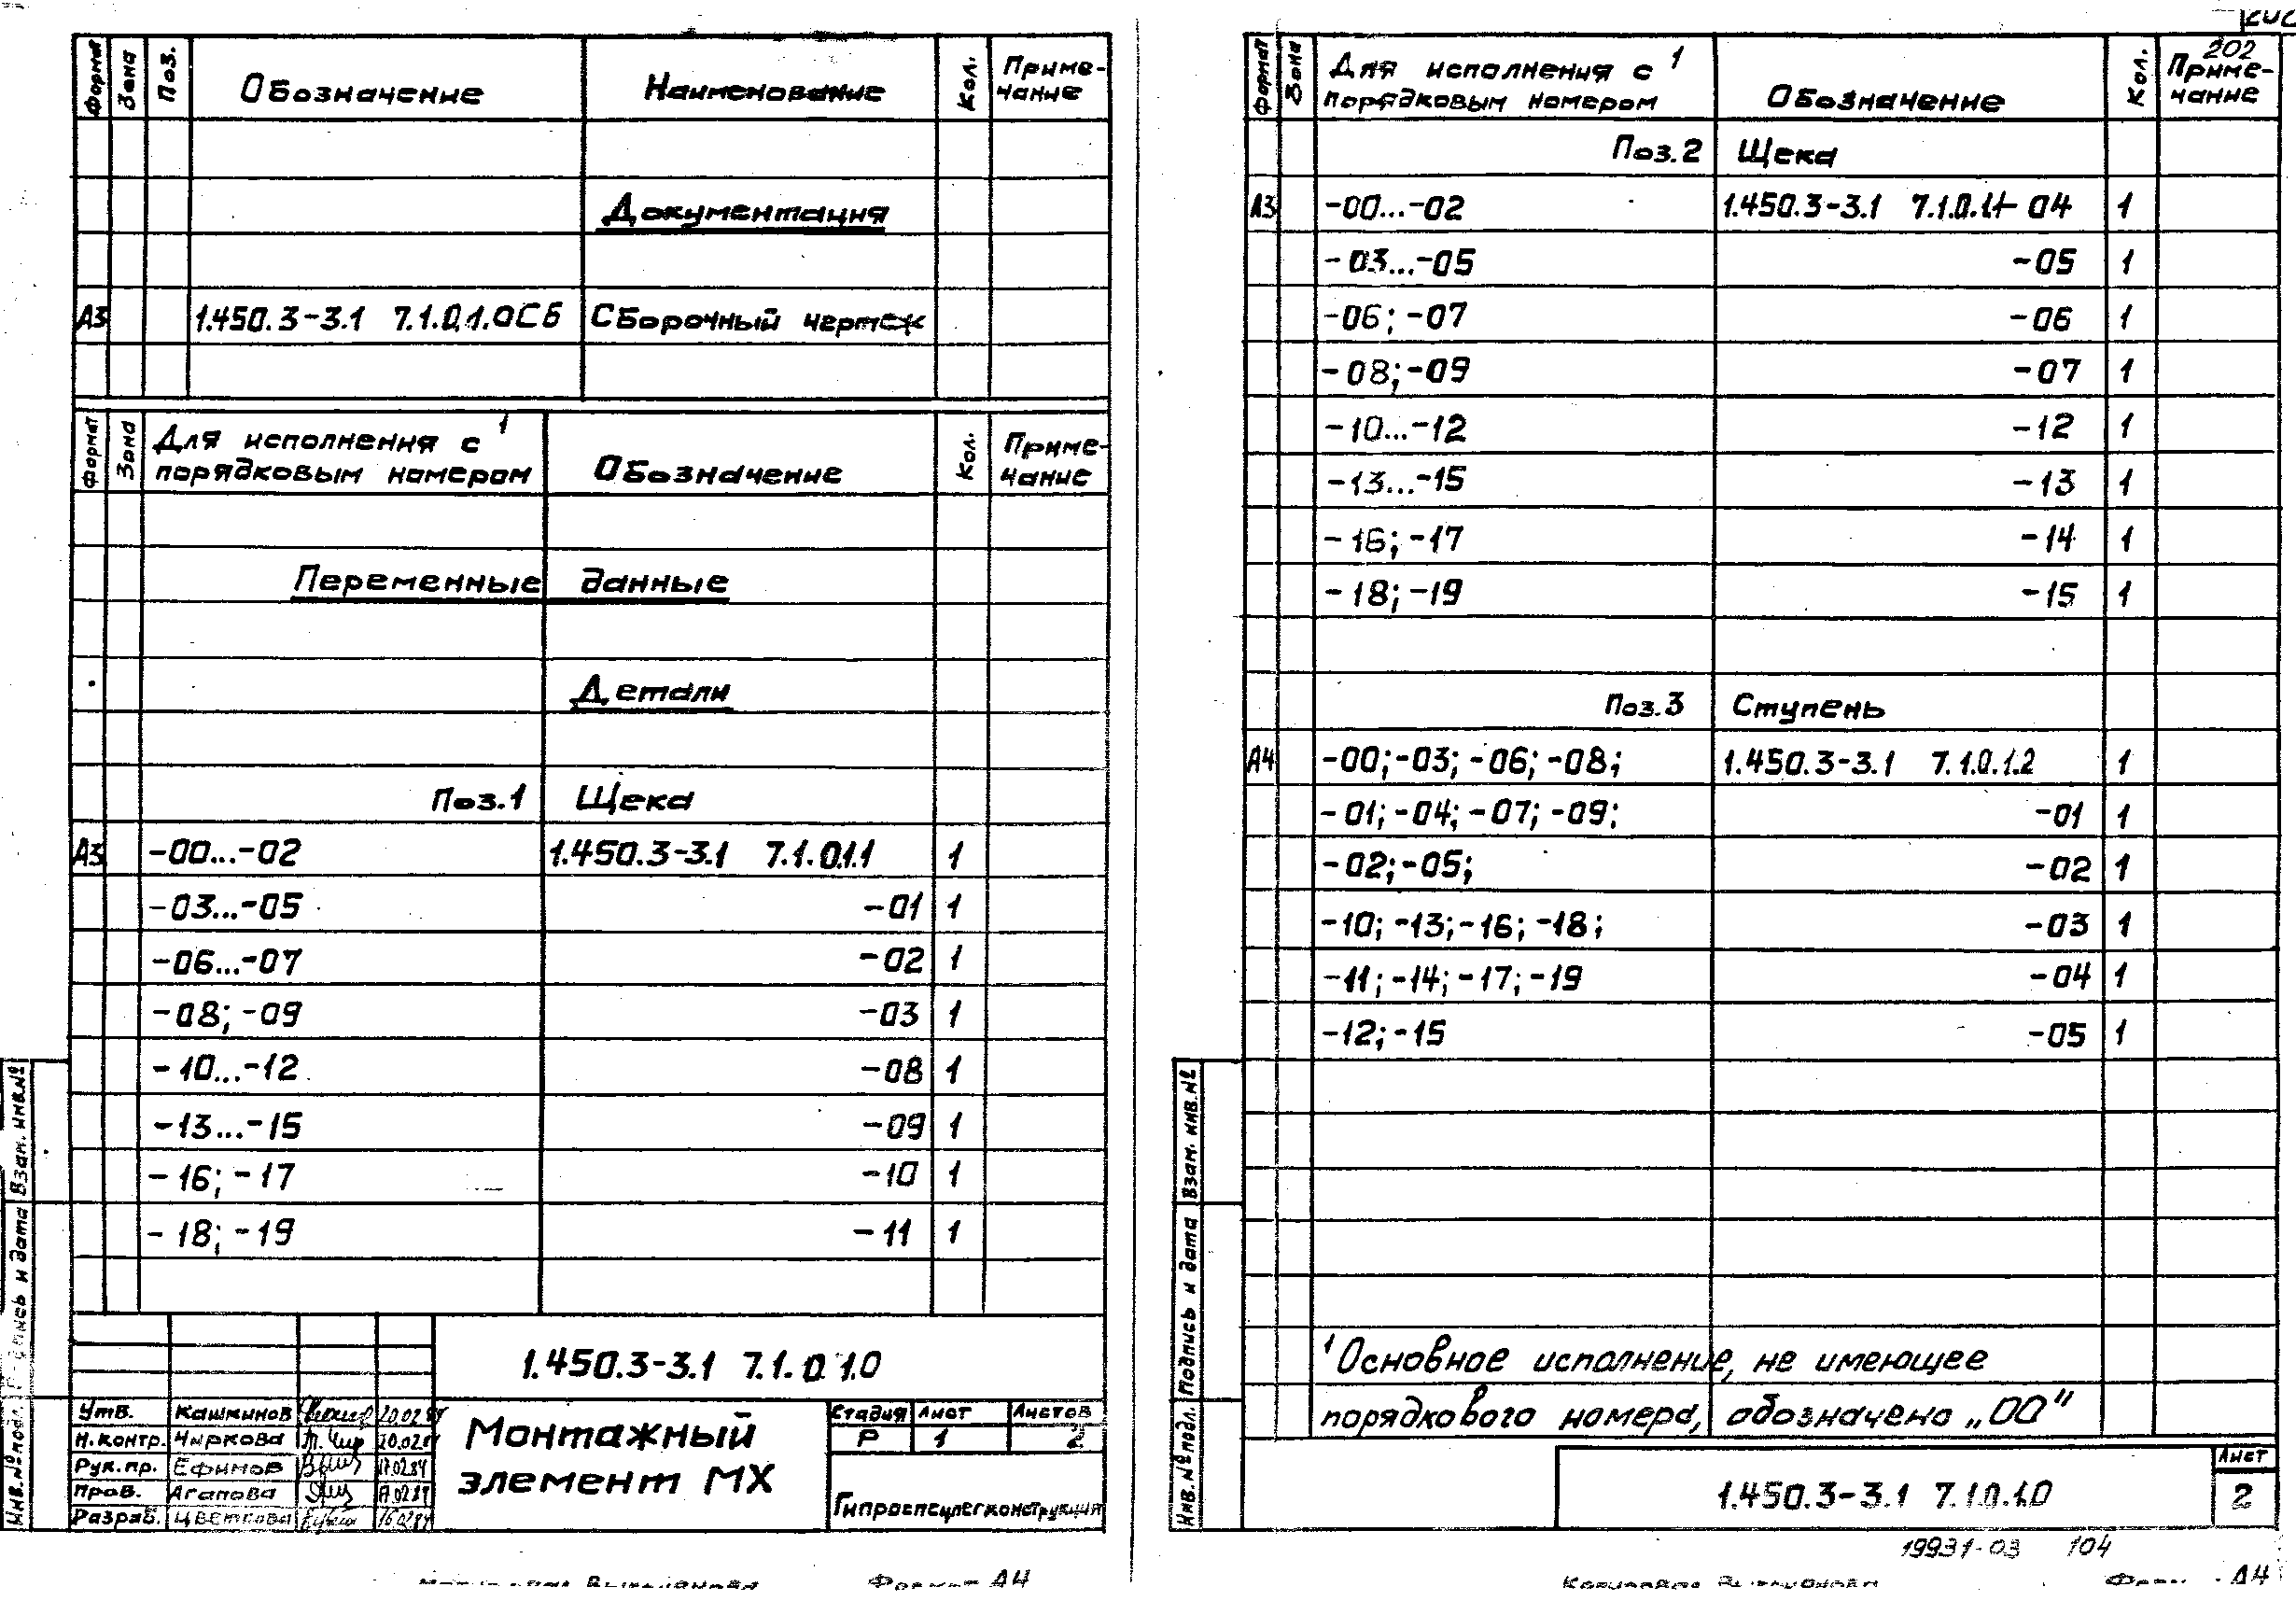 Формат Зона Поз. Обозначение Наименование Кол. Приме-
чание
Документация
А3 1.450.3-3.1 7.1.0.1.0СБ Сборочный чертеж
Формат Зона Для исполнения с ¹ Обозначение Кол. Приме-
порядковым номером чание
Переменные данные
Детали
Поз.1 Щека
А3 -00...-02 1.450.3-3.1 7.1.0.1.1 1
-03...-05 -01 1
-06...-07 -02 1
-08; -09 -03 1
-10...-12 -08 1
-13...-15 -09 1
-16; -17 -10 1
-18; -19 -11 1
1.450.3-3.1 7.1.0.1.0
Утв. Кашкинов 20.02.84
Н.контр. Чиркова 20.02.84
Рук.пр. Ефимов 17.02.84
Пров. Агапова 17.02.84
Разраб. Цветкова 16.02.84
Монтажный
элемент МХ
Стадия Лист Листов
Р 1 2
Гипроспецлегконструкция
Инв.№ подл. Подпись и дата Взам. инв.№
Формат А4
202
Формат Зона Для исполнения с ¹ Обозначение Кол. Приме-
порядковым номером чание
Поз.2 Щека
А3 -00...-02 1.450.3-3.1 7.1.0.1.1-04 1
-03...-05 -05 1
-06; -07 -06 1
-08; -09 -07 1
-10...-12 -12 1
-13...-15 -13 1
-16; -17 -14 1
-18; -19 -15 1
Поз.3 Ступень
А4 -00; -03; -06; -08; 1.450.3-3.1 7.1.0.1.2 1
-01; -04; -07; -09; -01 1
-02; -05; -02 1
-10; -13; -16; -18; -03 1
-11; -14; -17; -19 -04 1
-12; -15 -05 1
¹ Основное исполнение, не имеющее
порядкового номера, обозначено „00"
1.450.3-3.1 7.1.0.1.0
Лист
2
Инв.№ подл. Подпись и дата Взам. инв.№
19931-03 104
Копировал
А4